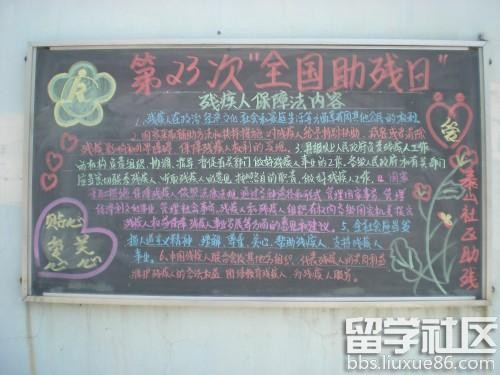 第23次"全国助残日"
残疾人保障法内容
1.残疾人在政治、经济、文化、社会和家庭生活等方面享有同其他公民的权利
2.国家采取辅助方法和扶持措施,对残疾人给予特别扶助,
保障残疾人权利的实现。3.县级以上人民政府负责残疾人工作
的机构负责组织、协调、指导、督促有关部门做好残疾人事业的工作。各级人民政府和有关部门
应当密切联系残疾人,听取残疾人的意见,做好残疾人工作。4.国家
保障残疾人依照法律规定,通过各种途径和形式,管理国家事务,管理
经济和文化事业,管理社会事务。残疾人和残疾人组织有权向各级国家机关提出
残疾人权益保障、残疾人事业发展等方面的意见和建议。5.全社会应当发
扬人道主义精神,理解、尊重、关心、帮助残疾人,支持残疾人
事业。6.中国残疾人联合会及其地方组织,代表残疾人的共同利益
维护残疾人的合法权益,团结教育残疾人,为残疾人服务。
贴心
关
心
泰山社区助残
留学社区
bbs.liuxue86.com